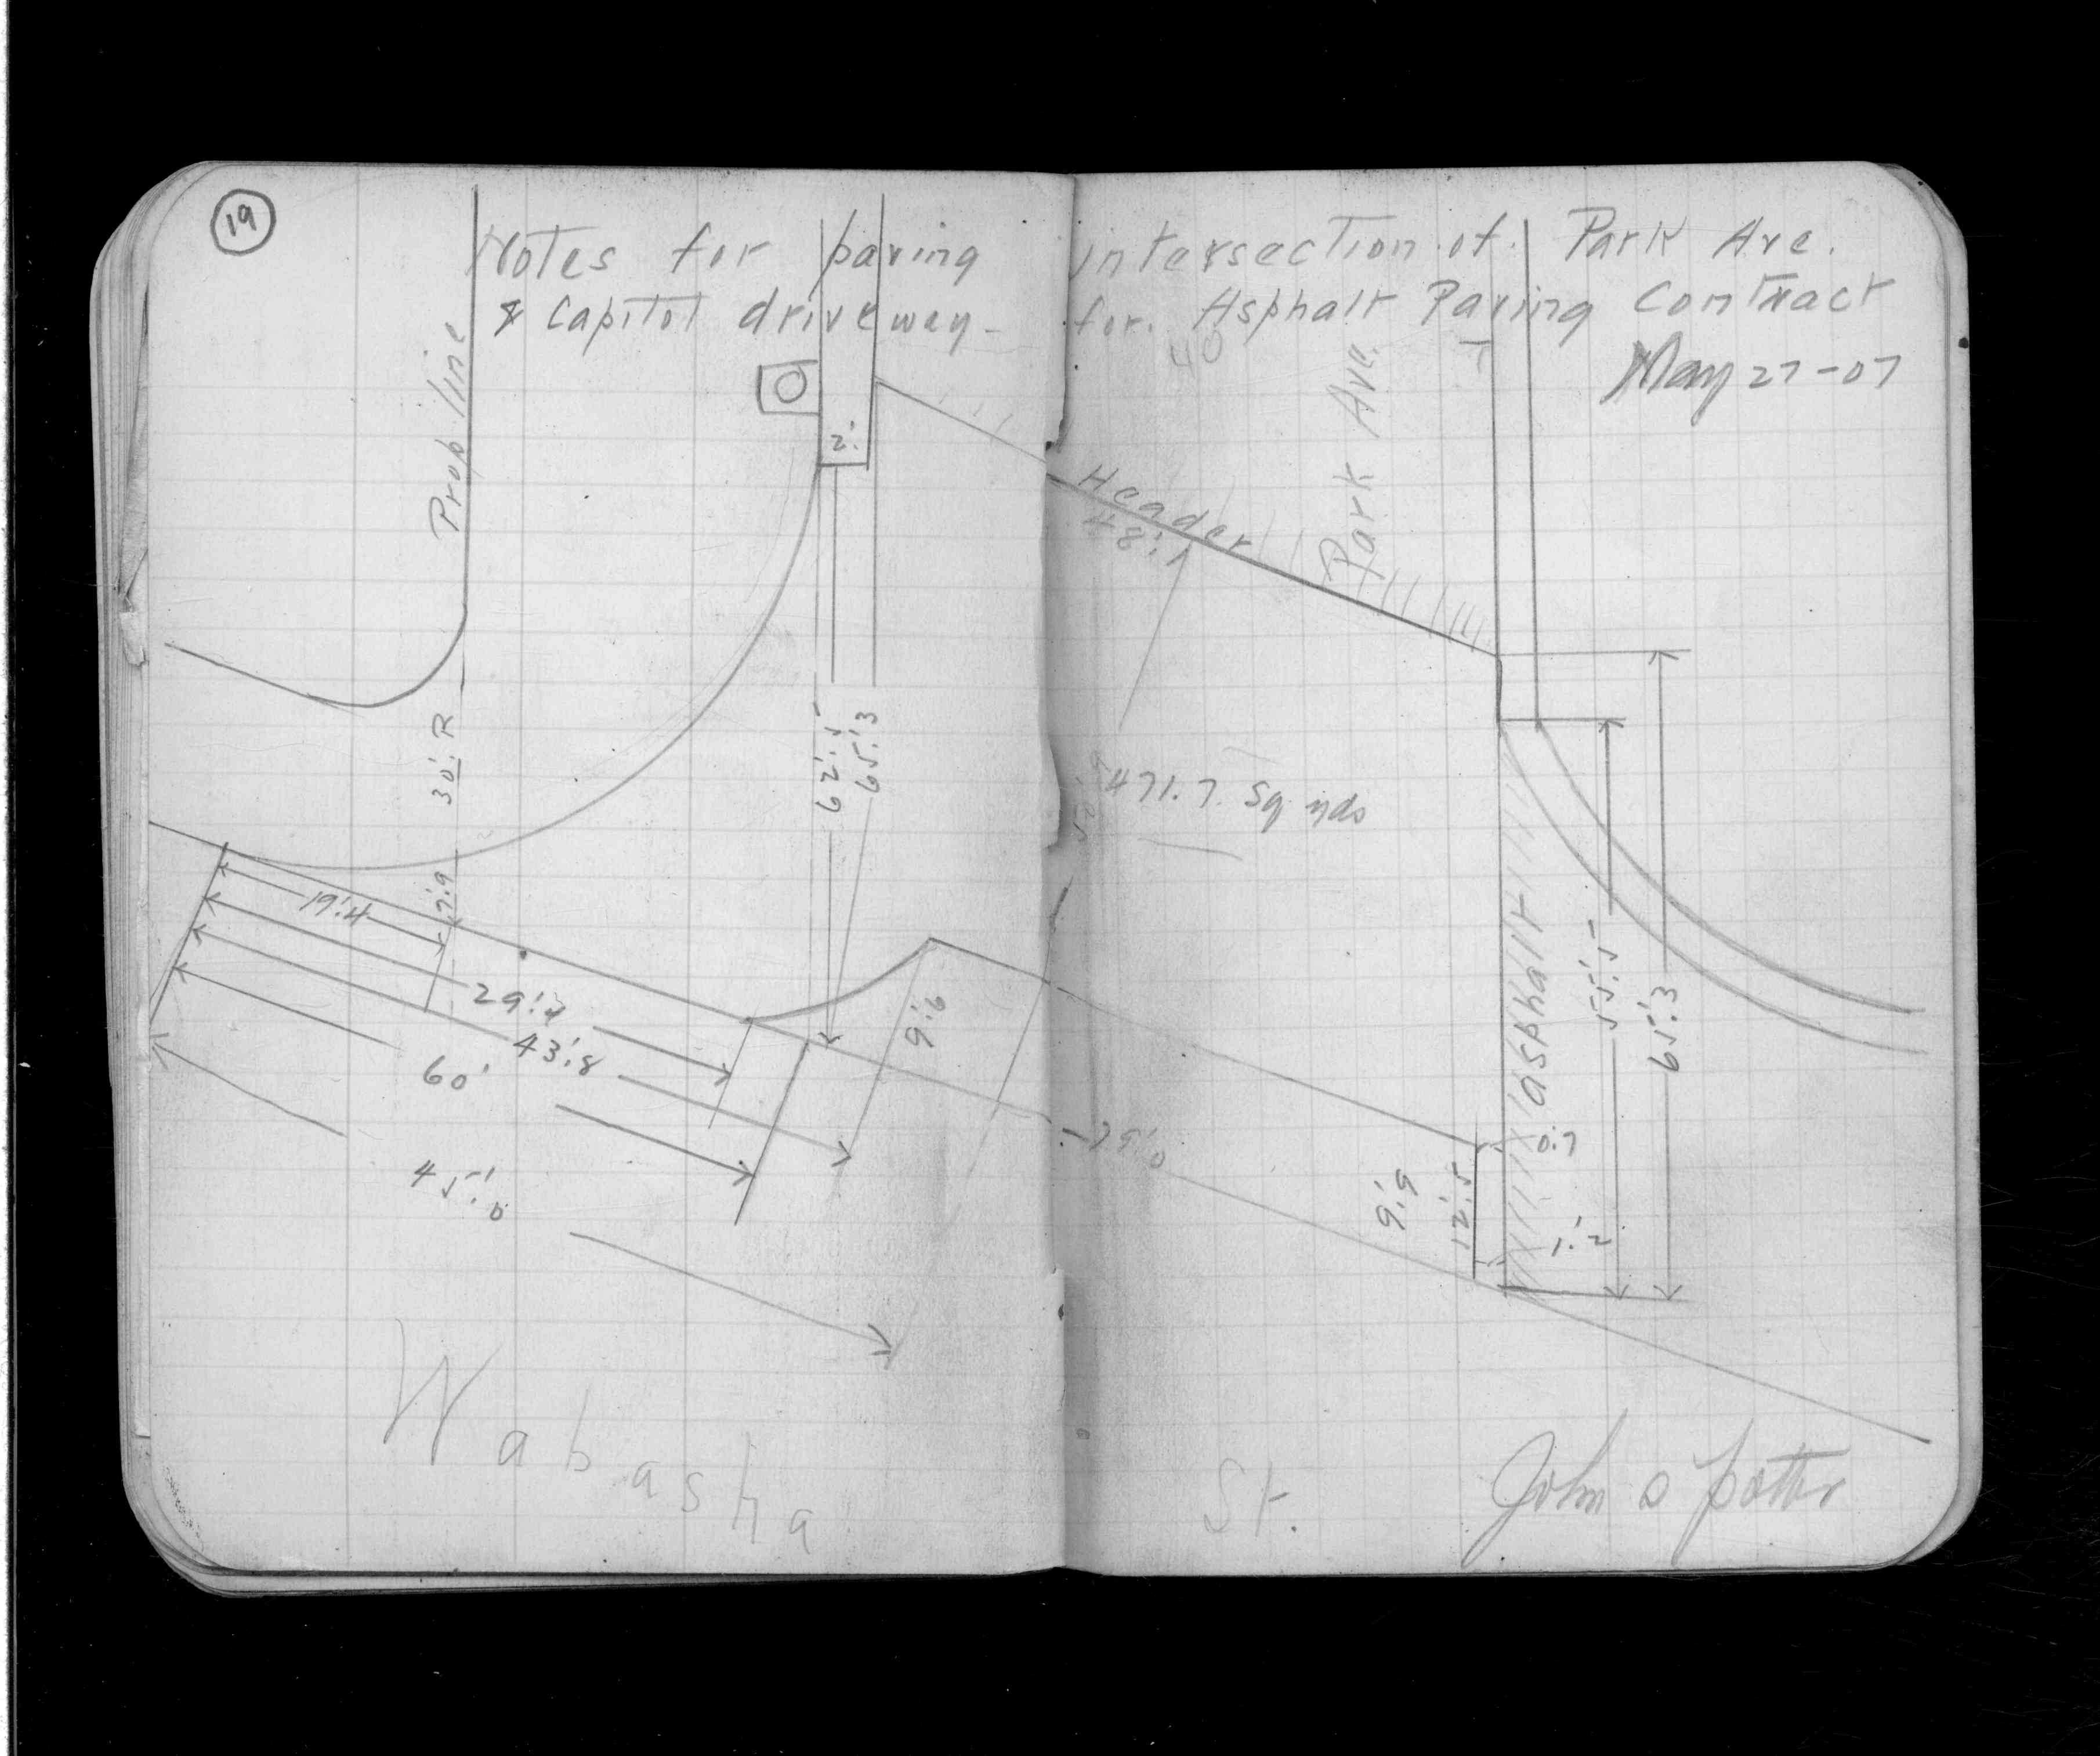 19
Notes for paving intersection of Park Ave.
& Capitol driveway - for Asphalt Paving Contract
May 27-07
40
Prop line
Park Ave
2.'
Header
48.'1
30' R
62.'5
65.'3
471.7 Sq yds
7.'9
19.'4
29.'2
43.'8
60'
45.'0
9.'6
29.'0
9.'9
12.'5
0.7
1.'2
asphalt
55.'5
65.'3
Wabasha St.
John S Potter